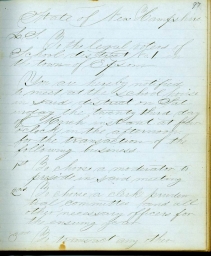 State of New Hampshire
L.S. To
To the legal voters of
School district No 1 in
the town of Epsom
You are hereby notified
to meet at the School house
in said district on Sat
urday the twenty third day
of March at
o'clock in the afternoon
to the transaction of the
following business
1st To choose a moderator to
preside in said meeting
2d To choose a clerk pruden
tial committee and all
other necessary officers for
the ensuing year
3d To transact any other